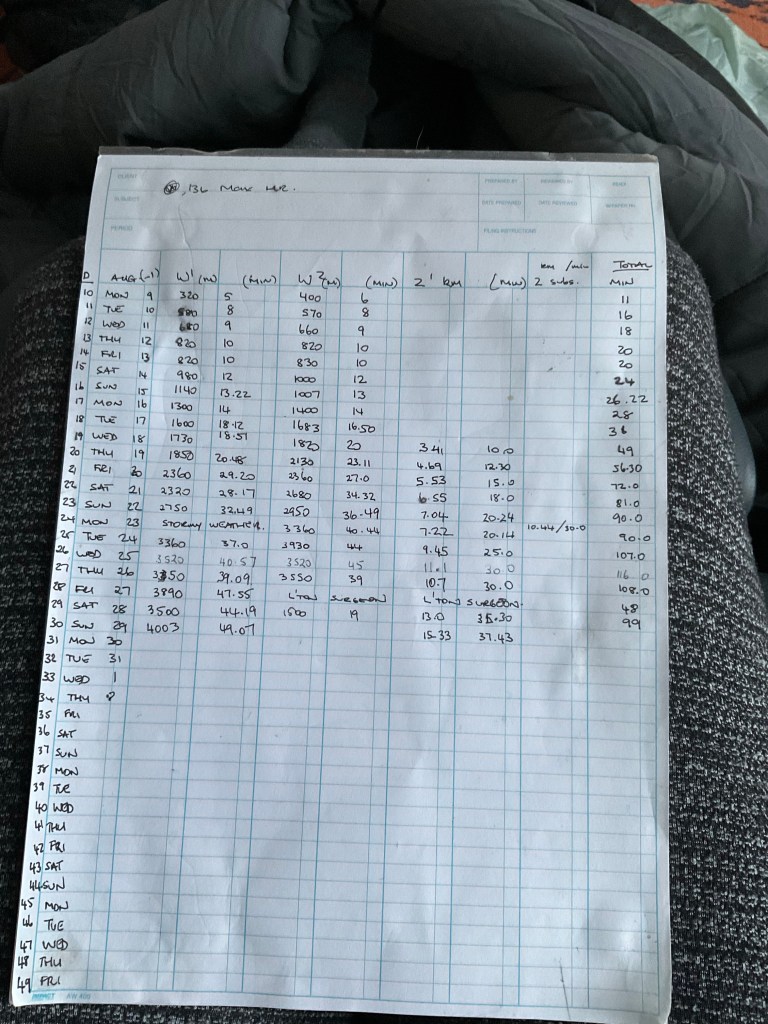 CLIENT 136 Max HR. PREPARED BY REVIEWED BY INDEX
SUBJECT DATE PREPARED DATE REVIEWED
PERIOD FILING INSTRUCTIONS
km/min TOTAL
D AUG (-1) W1 (M) (MIN) W2 (M) (MIN) Z' KM (MIN) Z subs. MIN
10 MON 9 320 5 400 6 11
11 TUE 10 8 570 8 16
12 WED 11 680 9 660 9 18
13 THU 12 820 10 820 10 20
14 FRI 13 820 10 830 10 20
15 SAT 14 980 12 1000 12 24
16 SUN 15 1140 13.22 1007 13 26.22
17 MON 16 1300 14 1400 14 28
18 TUE 17 1600 18.12 1683 16.50 36
19 WED 18 1730 18.57 1820 20 3.41 10.0 49
20 THU 19 1850 20.48 2130 23.11 4.69 12.30 56.30
21 FRI 20 2360 29.20 2360 27.0 5.53 15.0 72.0
22 SAT 21 2320 28.17 2680 34.32 6.55 18.0 81.0
23 SUN 22 2750 32.49 2950 36.49 7.04 20.24 10.44/30.0 90.0
24 MON 23 STORMY WEATHER. 3360 40.44 7.22 20.14 90.0
25 TUE 24 3360 37.0 3930 44 9.45 25.0 107.0
26 WED 25 3520 40.57 3520 45 11.1 30.0 116.0
27 THU 26 3350 39.09 3550 39 10.7 30.0 108.0
28 FRI 27 3890 47.55 L'TON SURGEON L'TON SURGEON. 48
29 SAT 28 3500 44.19 1500 19 13.0 35.30 99
30 SUN 29 4003 49.07 15.33 37.43
31 MON 30
32 TUE 31
33 WED 1
34 THU
35 FRI
36 SAT
37 SUN
38 MON
39 TUE
40 WED
41 THU
42 FRI
43 SAT
44 SUN
45 MON
46 TUE
47 WED
48 THU
49 FRI
IMPACT